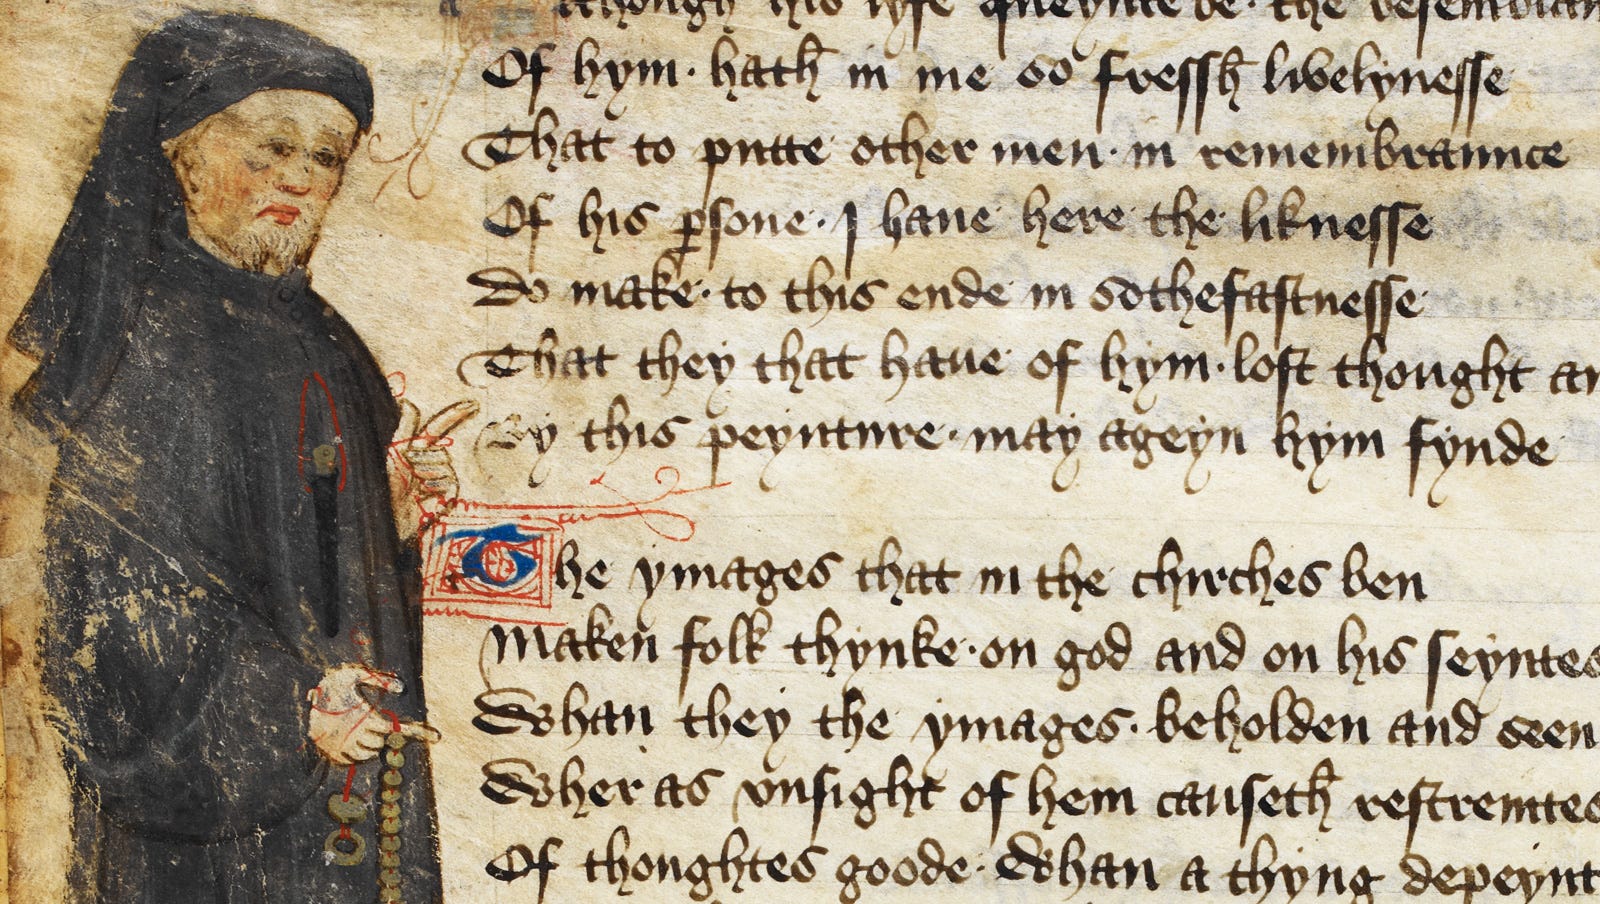 Although his lyfe queynte be. the resemblan
Of hym. hath in me so fressh lyvelynesse
That to putte other men. in remembraunce
Of his ꝑsone. I haue here the liknesse
Do make. to this ende in sothefastnesse
That they that haue of hym. lost thought an
By this peynture. may ageyn hym fynde
The ymages that in the chirches ben
Maken folk thynke. on god and on his seyntes
Whan they the ymages. beholden and seen
Wher as vnsight of hem causeth restreintes
Of thoughtes goode. Whan a thyng depeynt